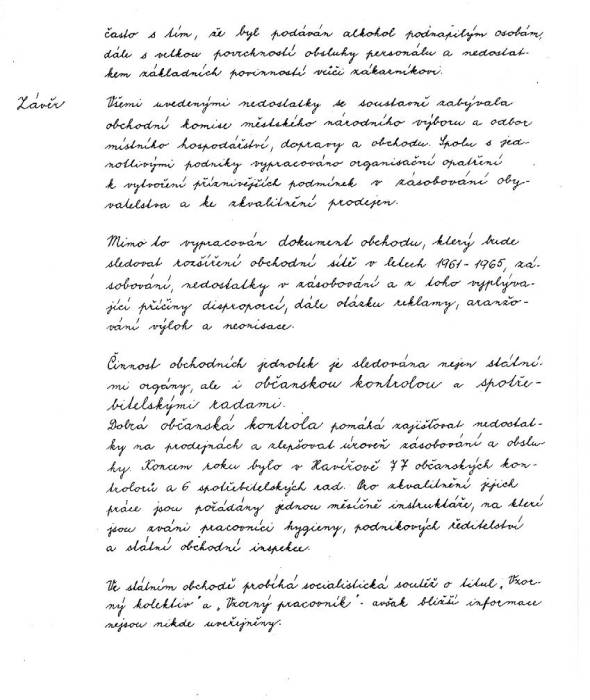 často s tím, že byl podáván alkohol podnapilým osobám,
dále s velkou povrchností obsluhy personálu a nedostat-
kem základních povinností vůči zákazníkovi.
Závěr
Všemi uvedenými nedostatky se soustavně zabývala
obchodní komise městského národního výboru a odbor
místního hospodářství, dopravy a obchodu. Spolu s jed-
notlivými podniky vypracováno organisační opatření
k vytvoření příznivějších podmínek v zásobování oby-
vatelstva a ke zkvalitnění prodejen.
Mimo to vypracován dokument obchodu, který bude
sledovat rozšíření obchodní sítě v letech 1961-1965, zá-
sobování, nedostatky v zásobování a z toho vyplýva-
jící příčiny disproporcí, dále otázku reklamy, aranžo-
vání výloh a neonisace.
Činnost obchodních jednotek je sledována nejen státní-
mi orgány, ale i občanskou kontrolou a spotře-
bitelskými radami.
Dobrá občanská kontrola pomáhá zajišťovat nedostat-
ky na prodejnách a zlepšovat úroveň zásobování a obslu-
hy. Koncem roku bylo v Havířově 77 občanských kon-
trolorů a 6 spotřebitelských rad. Pro zkvalitnění jejich
práce jsou pořádány jednou měsíčně instruktáže, na které
jsou zváni pracovníci hygieny, podnikových ředitelství
a státní obchodní inspekce.
Ve státním obchodě probíhá socialistická soutěž o titul „Vzor-
ný kolektiv" a „Vzorný pracovník" - avšak bližší informace
nejsou nikde uveřejněny.